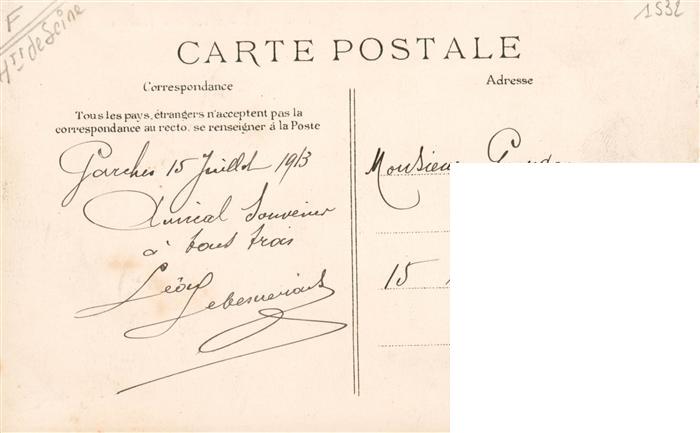 F
Hts de Seine
1532
CARTE POSTALE
Correspondance
Adresse
Tous les pays, étrangers n'acceptent pas la
correspondance au recto. se renseigner à la Poste
Garches 15 Juillet 1913
Amical Souvenir
à tous trois
Léon
Monsieur
15